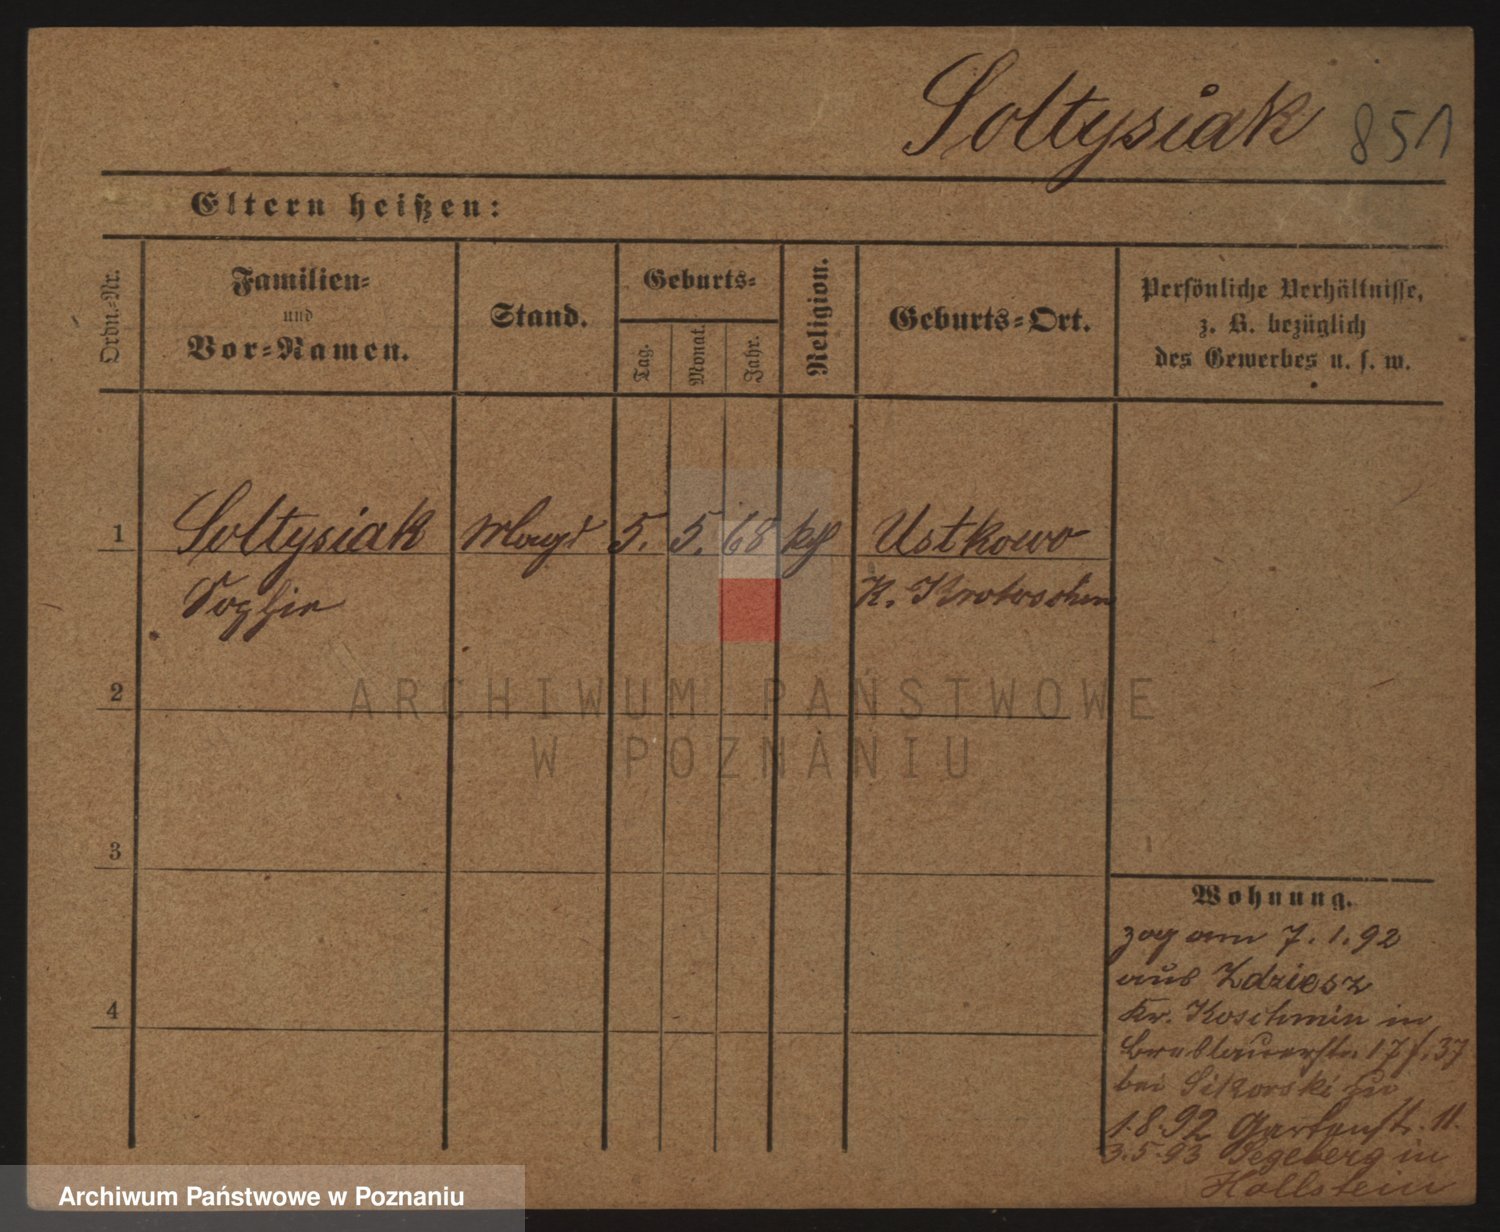 Soltysiak 851
Eltern heißen:
Ordn.-Nr.
Familien-
und
Vor-Namen.
Stand.
Geburts-
Tag.
Monat.
Jahr.
Religion.
Geburts-Ort.
Persönliche Verhältnisse,
z. B. bezüglich
des Gewerbes u. s. w.
1 Soltysiak Magd 5. 5. 68 kh Ustkowo
Sophie K. Krotoschin
2
3
4
Wohnung.
zog am 7. 1. 92
aus Zdziesz
Kr. Koschmin in
Breslauerstr. 17/37
bei Sikorski zu
1.8.92 Gartenstr. 11.
3.5.93 Segeberg in
Hollstein
ARCHIWUM PAŃSTWOWE
W POZNANIU
Archiwum Państwowe w Poznaniu